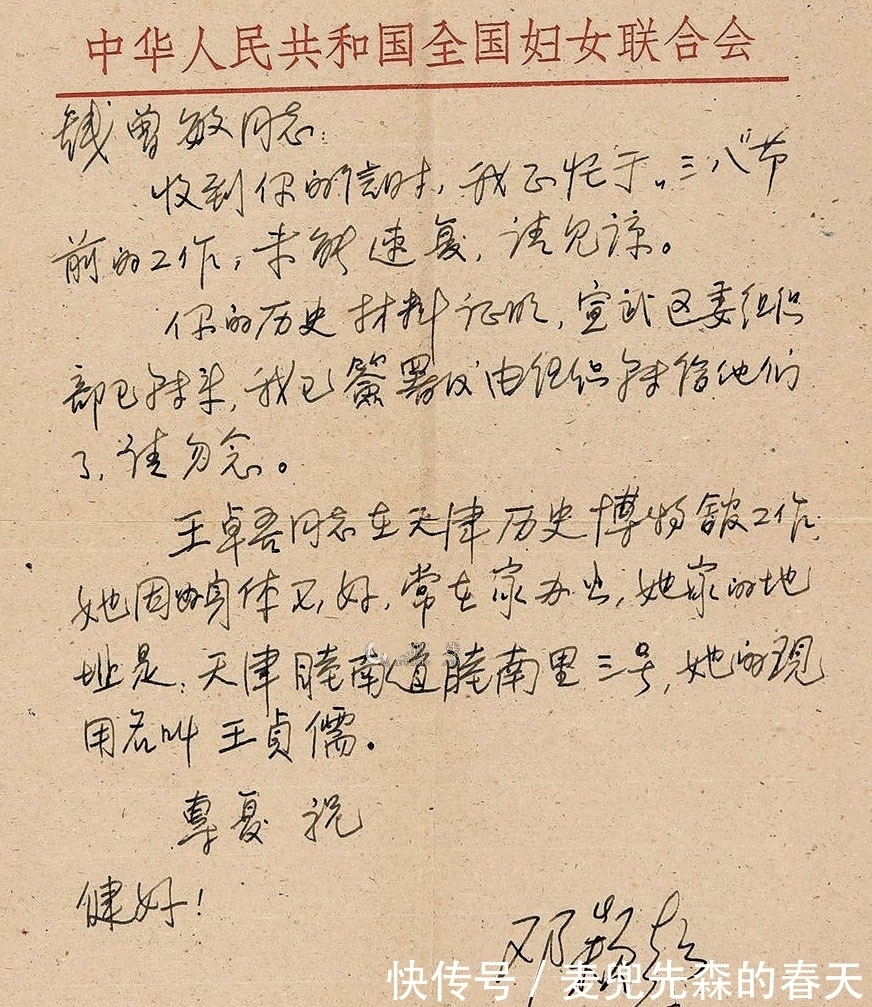 中华人民共和国全国妇女联合会
钱曾敏同志：
收到你的信时，我正忙于“三八”节
前的工作，未能速复，请见谅。
你的历史材料证明，宣武区委组织
部已转来，我已簽署仅由组织转给他们
了，请勿念。
王卓吾同志在天津历史博物馆工作，
她因为身体不好，常在家办公，她家的地
址是：天津睦南道睦南里三号，她的现
用名叫王贞儒。
專复 祝
健好！
邓颖超
快传号 / 麦兜先森的春天